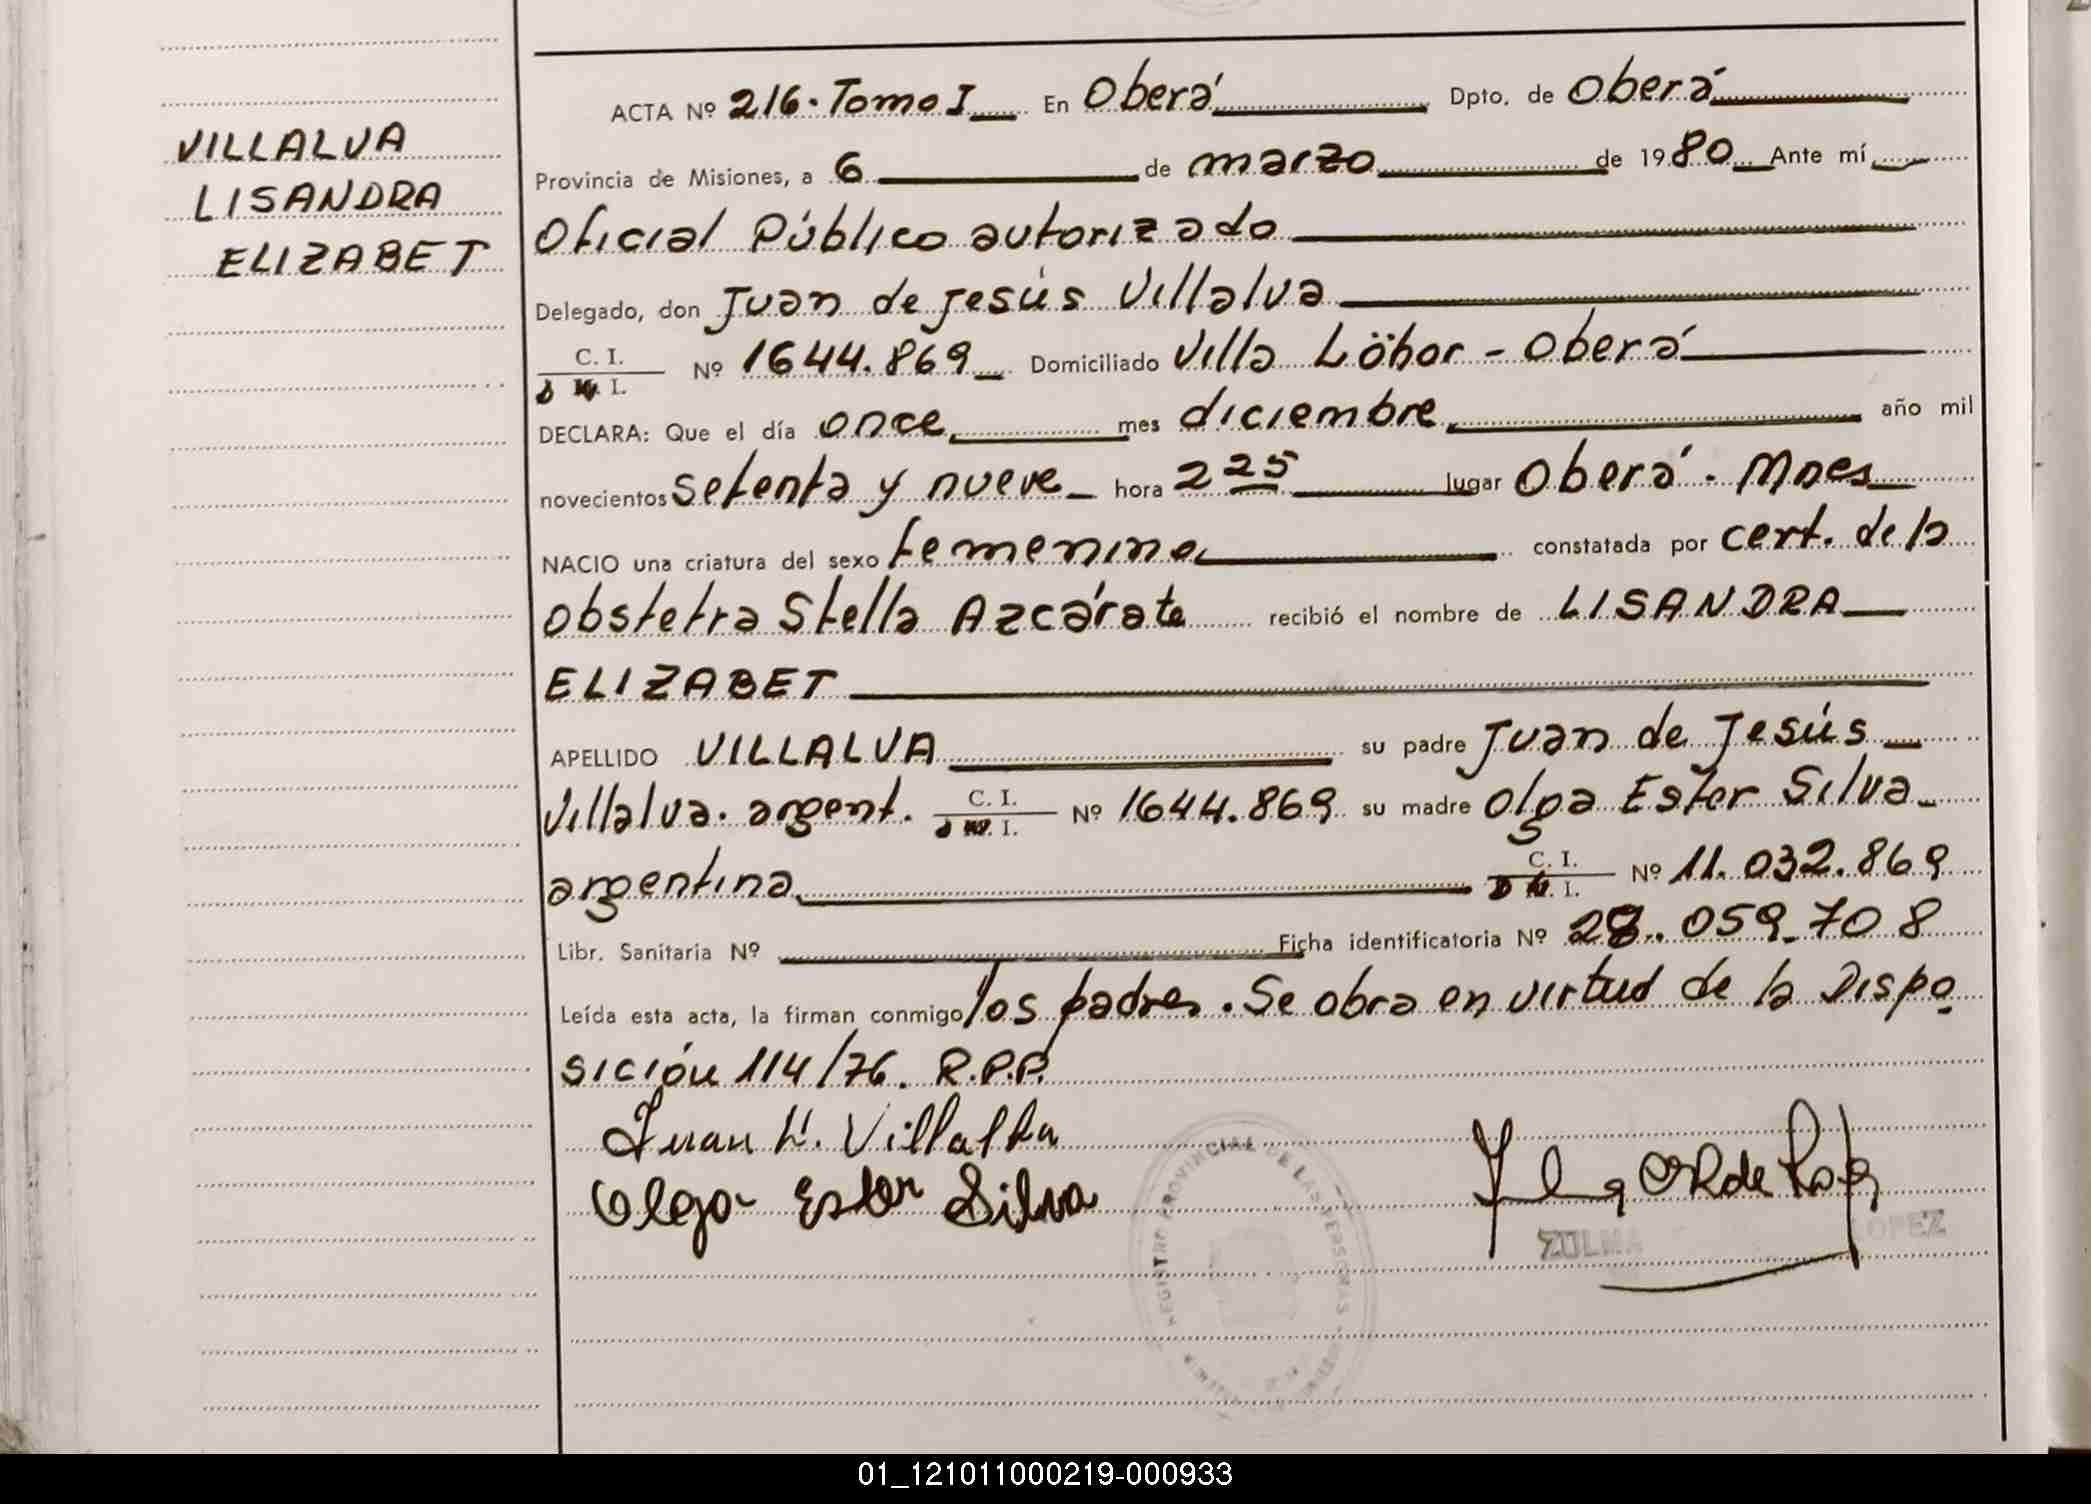 VILLALVA
LISANDRA
ELIZABET
ACTA Nº 216. Tomo I En Oberá Dpto. de Oberá
Provincia de Misiones, a 6 de marzo de 1980 Ante mí,
Oficial Público autorizado
Delegado, don Juan de Jesús Villalva
C. I.
Nº 1644.869 Domiciliado Villa Löhor - Oberá
D I.
DECLARA: Que el día once mes diciembre año mil
novecientos setenta y nueve hora 2 25 lugar Oberá. Mnes
NACIO una criatura del sexo femenino constatada por cert. de la
Obstetra Stella Azcárate recibió el nombre de LISANDRA
ELIZABET
APELLIDO VILLALVA su padre Juan de Jesús
Villalva. argent. C. I. Nº 1644.869 su madre Olga Ester Silva
D I.
argentina C. I. Nº 11.032.869
D I.
Libr. Sanitaria Nº Ficha identificatoria Nº 28.059.708
Leída esta acta, la firman conmigo los padres. Se obra en virtud de la Dispo
sición 114/76. R.P.P.
Juan Villalba
Olga Ester Silva
REGISTRO PROVINCIAL DE LAS PERSONAS
ZULMA LOPEZ
01_121011000219-000933